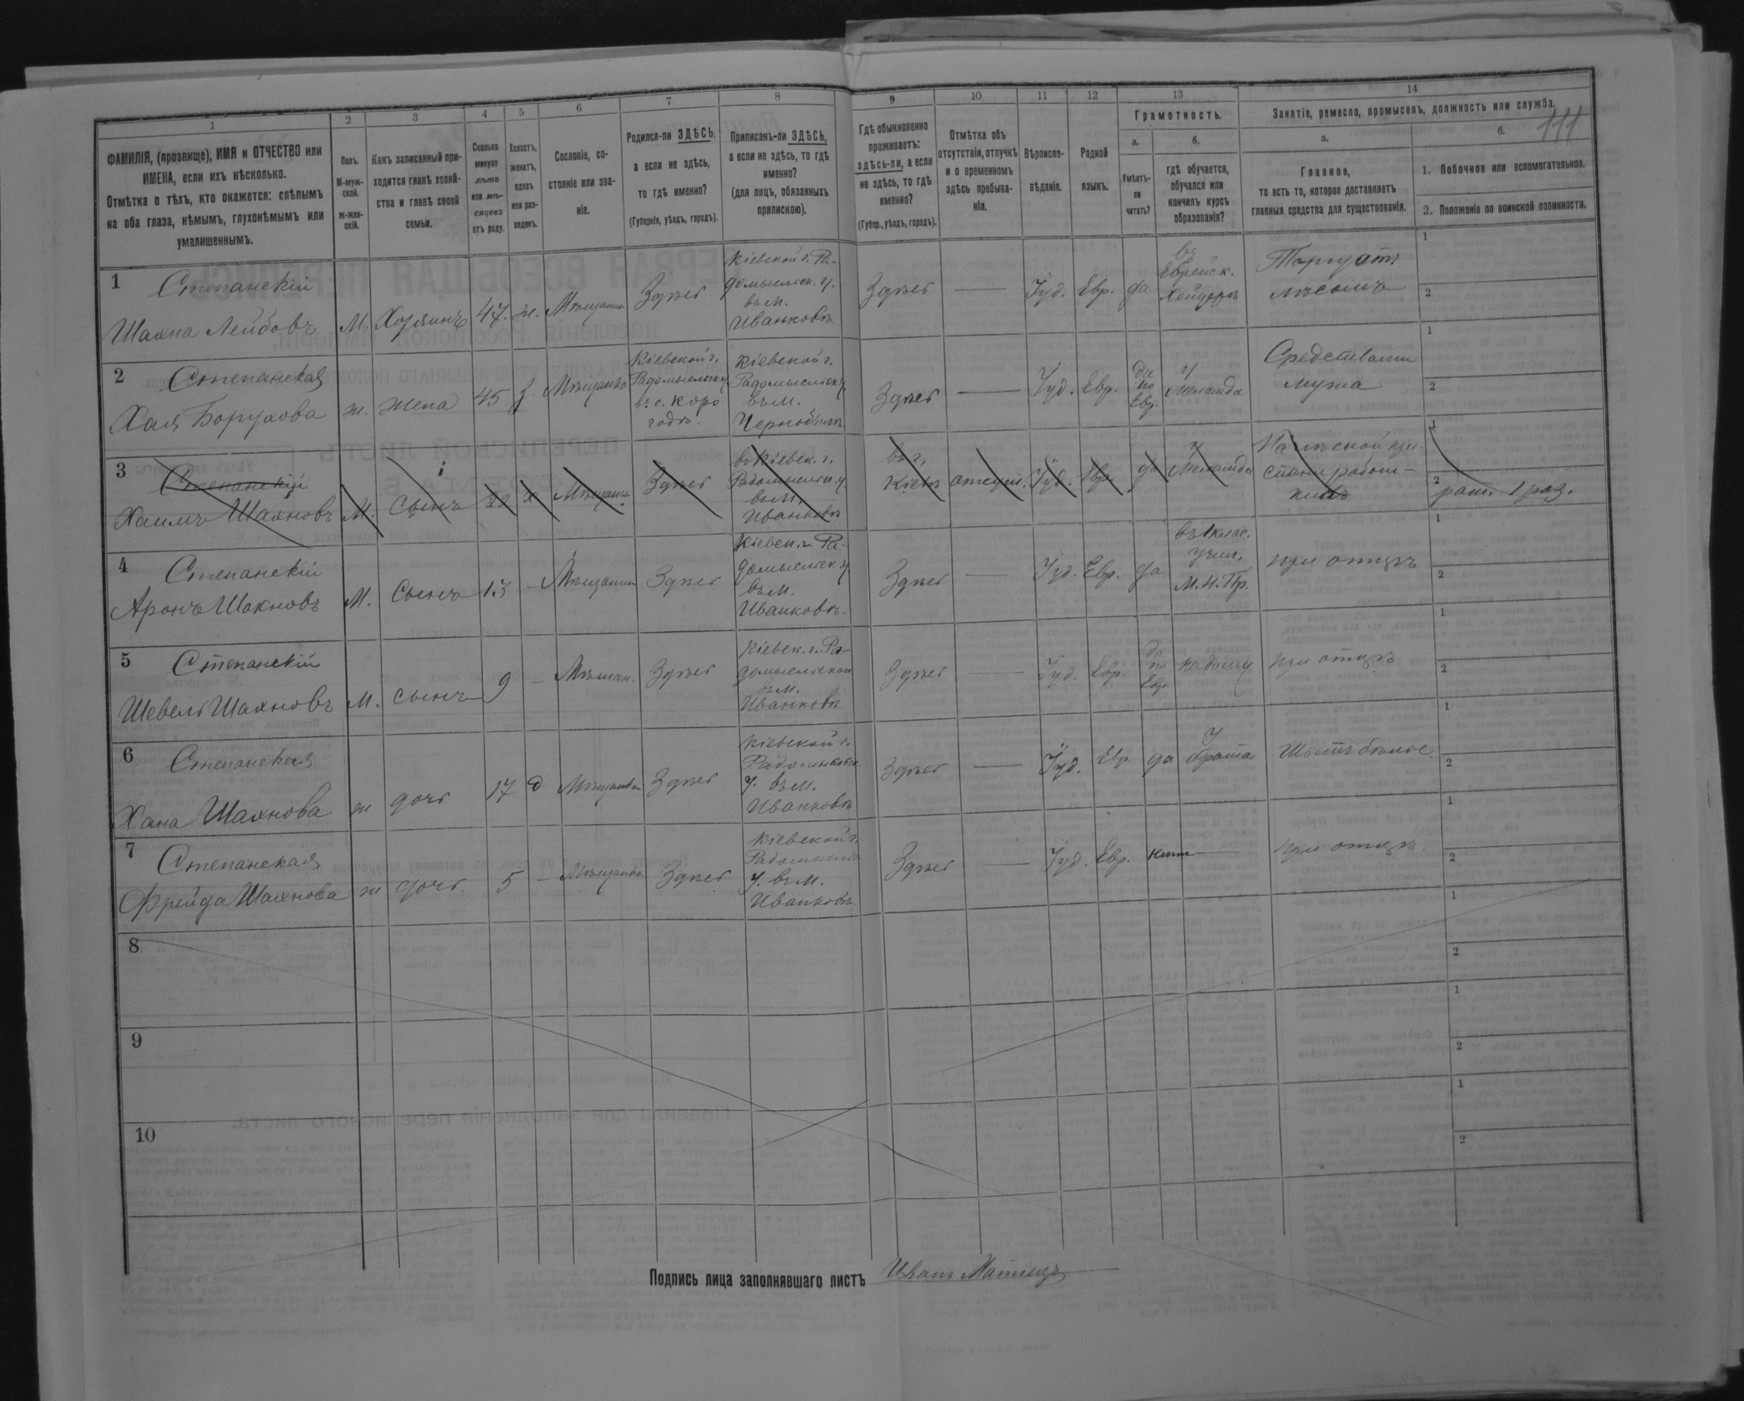 111
1
2
3
4
5
6
7
8
9
10
11
12
13
14
ФАМИЛІЯ, (прозвище), ИМЯ и ОТЧЕСТВО или
ИМЕНА, если ихъ нѣсколько.
Отмѣтка о тѣхъ, кто окажется: слѣпымъ
на оба глаза, нѣмымъ, глухонѣмымъ или
умалишеннымъ.
Полъ.
М-муж-
ской.
ж-жен-
скій.
Какъ записанный при-
ходится главѣ хозяй-
ства и главѣ своей
семьи.
Сколько
минуло
лѣтъ
или мѣ-
сяцевъ
отъ роду.
Холостъ,
женатъ,
вдовъ
или раз-
веденъ.
Сословіе, со-
стояніе или зва-
ніе.
Родился-ли ЗДѢСЬ,
а если не здѣсь,
то гдѣ именно?
(Губернія, уѣздъ, городъ).
Приписанъ-ли ЗДѢСЬ,
а если не здѣсь, то гдѣ
именно?
(для лицъ, обязанныхъ
припискою).
Гдѣ обыкновенно
проживаетъ:
здѣсь-ли, а если
не здѣсь, то гдѣ
именно?
(Губер., уѣздъ, городъ).
Отмѣтка объ
отсутствіи, отлучкѣ
и о временномъ
здѣсь пребыва-
ніи.
Вѣроиспо-
вѣданіе.
Родной
языкъ.
Грамотность.
а.
Умѣетъ-
ли
читать?
б.
гдѣ обучается,
обучался или
кончилъ курсъ
образованія?
Занятіе, ремесло, промыселъ, должность или служба.
а.
Главное,
то есть то, которое доставляетъ
главныя средства для существованія.
б.
1. Побочное или вспомогательное.
2. Положеніе по воинской повинности.
1
Степанскій
Шахна Лейбовъ
М.
Хозяинъ
47.
ж.
Мѣщанин
Здѣсь
Кіевской г. Ра-
домысльск. у.
въ м.
Иванковъ
Здѣсь
Іуд.
Евр.
да
въ
Еврейск.
Хейдеръ
Торгуетъ
мясомъ
1
2
2
Степанская
Хая Борухова
ж.
жена
45
з.
Мѣщанка
Кіевской г.
Радомысльск у
въ с. Коро
годъ.
Кіевской г.
Радомысльск у
въ м.
Чернобыль
Здѣсь
Іуд.
Евр.
да
по
Евр.
у
Меламда
Средствами
мужа
1
2
3
Степанскій
Хаимъ Шахновъ
М.
сынъ
Здѣсь
въ Кіевск. г.
Радомысльск у
въ м.
Иванковъ
въ г.
Кіевъ
отсут.
Іуд.
Евр.
да
у
Меламда
1
2
рат. 1 раз.
4
Степанскій
Аронъ Шахновъ
М.
сынъ
13
Мѣщанин
Здѣсь
Кіевск. г. Ра-
домысльск у
въ м.
Иванковъ.
Здѣсь
Іуд.
Евр.
да
въ 1 клас.
учил.
М. Н. Пр.
при отцѣ
1
2
5
Степанскій
Шевель Шахновъ
М.
сынъ
9
Мѣщан.
Здѣсь
Кіевск. г. Ра-
домысльской
въ м.
Иванковъ
Здѣсь
Іуд.
Евр.
да
по
Евр.
при отцѣ
1
2
6
Степанская
Хана Шахнова
ж
дочь
17
д
Мѣщанка
Здѣсь
Кіевской г.
Радомысльск.
у. въ м.
Иванковъ
Здѣсь
Іуд.
Евр.
да
у
брата
Шьетъ бѣлье
1
2
7
Степанская
Фрейда Шахнова
ж
дочь
5
Мѣщанка
Здѣсь
Кіевской г.
Радомысльск
у. въ м.
Иванковъ
Здѣсь
Іуд.
Евр.
нѣтъ
при отцѣ.
1
2
8
1
2
9
1
2
10
1
2
Подпись лица заполнявшаго листъ
Иванъ